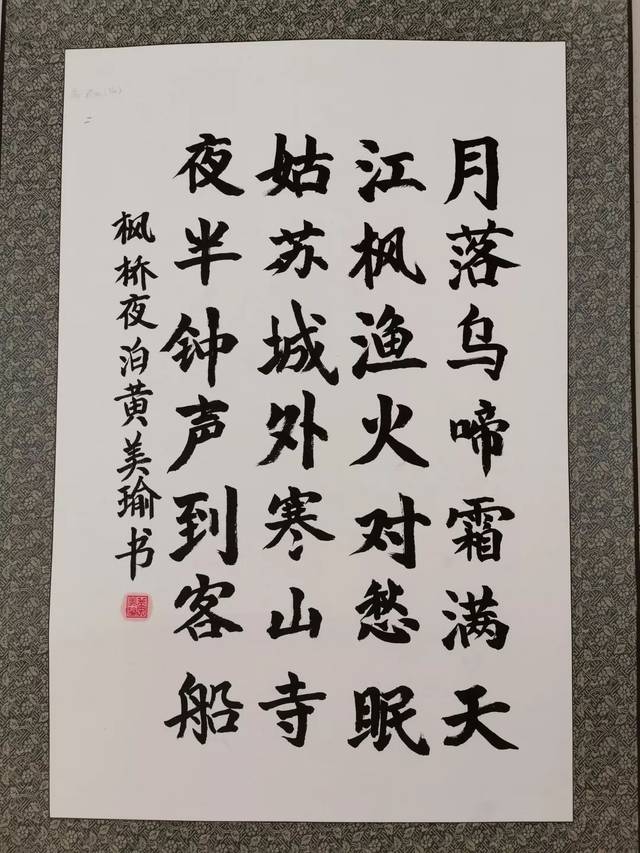 月落乌啼霜满天
江枫渔火对愁眠
姑苏城外寒山寺
夜半钟声到客船
枫桥夜泊黄美瑜书